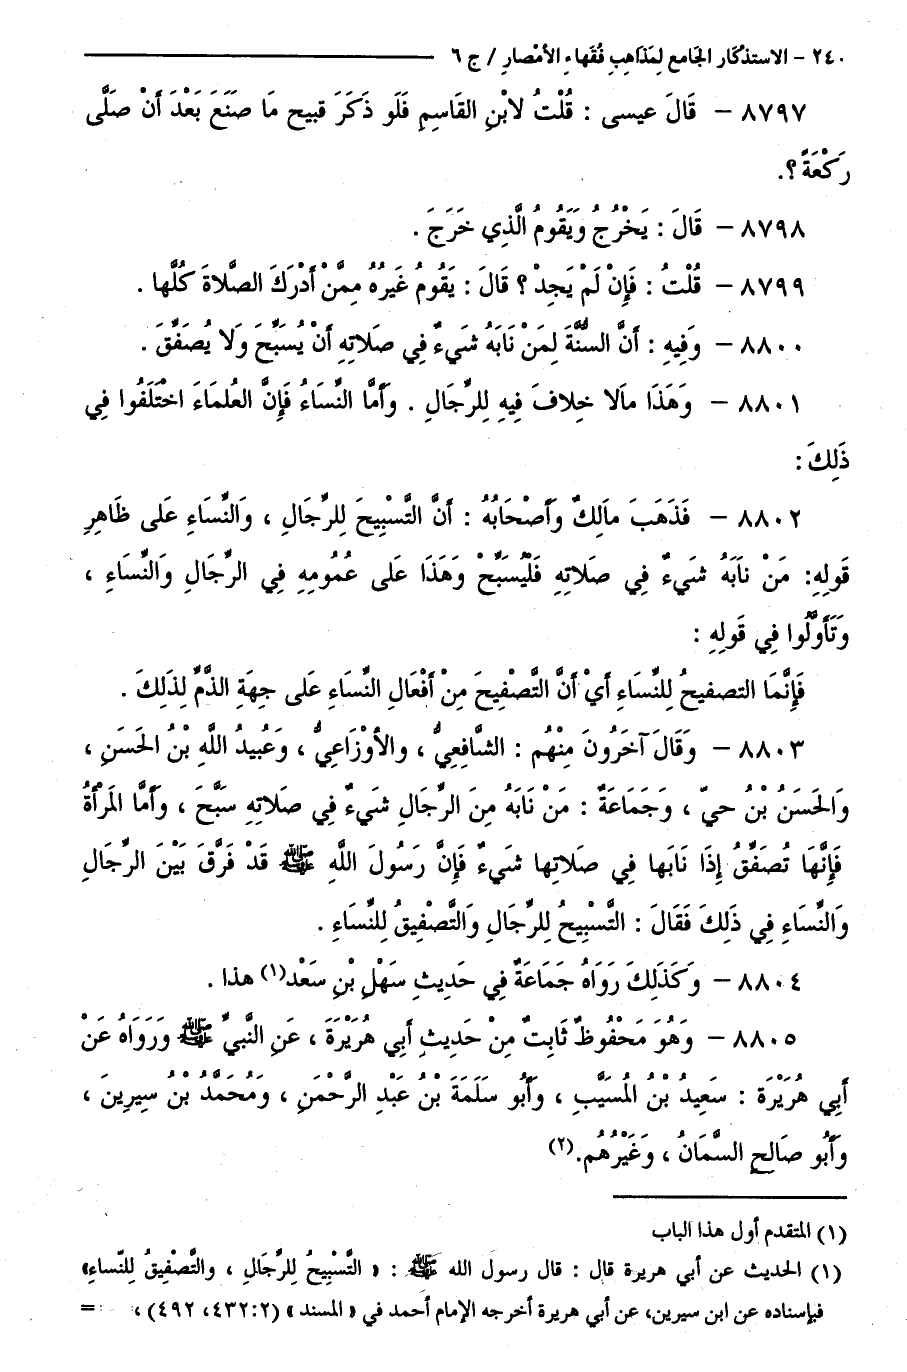 ٢٤٠ – الاستذْكار الجَامع لِمَذاهِبِ فُقَهاءِ الأمْصارِ / ج ٦
٨٧٩٧ – قَالَ عيسى : قُلْتُ لابْنِ القَاسِمِ فَلَو ذَكَرَ قبيح مَا صَنَعَ بَعْدَ أنْ صَلَّى
رَكْعَةً ؟.
٨٧٩٨ – قَالَ : يَخْرُجُ وَيَقُومُ الَّذِي خَرَجَ .
٨٧٩٩ – قُلْتُ : فَإِنْ لَمْ يَجِدْ ؟ قالَ : يَقُومُ غَيَرُهُ مِمَّنْ أدْرَكَ الصَّلاةَ كُلَّها .
٨٨٠٠ – وَفِيهِ : أنَّ السُّنَّةَ لِمَنْ نَابَهُ شَيءٌ فِي صَلاتِهِ أنْ يُسَبِّحَ وَلا يُصَفِّقَ .
٨٨٠١ – وَهَذَا مالَا خِلافَ فِيهِ لِلرِّجَالِ . وَأَمَّا النِّسَاءُ فَإِنَّ العُلَمَاءَ اخْتَلَفُوا فِي
ذَلِكَ :
٨٨٠٢ – فَذَهَبَ مَالِكٌ وَأصْحَابُهُ : أَنَّ التَّسْبِيحَ لِلرِّجَالِ ، وَالنِّسَاءِ عَلى ظَاهِرِ
قَولِهِ: مَنْ نَابَهُ شَيءٌ فِي صَلاتِهِ فَلْيُسَبِّحْ وَهَذَا عَلى عُمُومِهِ فِي الرِّجَالِ وَالنِّسَاءِ ،
وَتَأَوَّلُوا فِي قَولِهِ :
فَإِنَّمَا التصفيحُ لِلنِّسَاءِ أَيْ أنَّ التَّصْفِيحَ مِنْ أفْعَالِ النِّسَاءِ عَلى جِهَةِ الذَّمِّ لِذَلِكَ .
٨٨٠٣ – وَقَالَ آخَرُونَ مِنْهُم : الشَّافِعِيُّ ، والأوْزَاعِيُّ ، وَعُبيدُ اللَّهِ بْنُ الحَسَنِ ،
وَالحَسَنُ بْنُ حيّ ، وَجَمَاعَةٌ : مَنْ نَابَهُ مِنَ الرِّجَالِ شَيءٌ فِي صَلاتِهِ سَبَّحَ ، وَأَمَّا المَرْأةُ
فَإِنَّهَا تُصَفِّقُ إِذَا نَابَها فِي صَلاتِها شَيءٌ فَإِنَّ رَسُولَ اللَّهِ ﷺ قَدْ فَرَّقَ بَيْنَ الرِّجَالِ
وَالنِّسَاءِ فِي ذَلِكَ فَقَالَ : التَّسْبِيحُ لِلرِّجَالِ وَالتَّصْفِيقُ لِلنِّسَاءِ .
٨٨٠٤ – وَكَذَلِكَ رَوَاهُ جَمَاعَةٌ فِي حَدِيثِ سَهْلِ بْنِ سَعْد(١) هذا .
٨٨٠٥ – وَهُوَ مَحْفُوظٌ ثَابِتٌ مِنْ حَدِيثِ أبِي هُرَيْرَةَ ، عَنِ النَّبِيِّ ﷺ وَرَوَاهُ عَنْ
أبِي هُرَيْرَة : سَعِيدُ بْنُ المُسَيَّبِ ، وَأبُو سَلَمَةَ بْنُ عَبْدِ الرَّحْمَنِ ، وَمُحَمَّدُ بْنُ سِيرِينَ ،
وَأَبُو صَالِحٍ السَّمَّانُ ، وَغَيْرُهُم.(٢)
(١) المتقدم أول هذا الباب
(١) الحديث عن أبي هريرة قال : قال رسول الله ﷺ : « التَّسْبِيحُ لِلرِّجَالِ ، والتَّصْفِيقُ لِلنِّساءِ»
فبإسناده عن ابن سيرين، عن أبي هريرة أخرجه الإمام أحمد في « المسند » (٢:٤٣٢، ٤٩٢) ، =